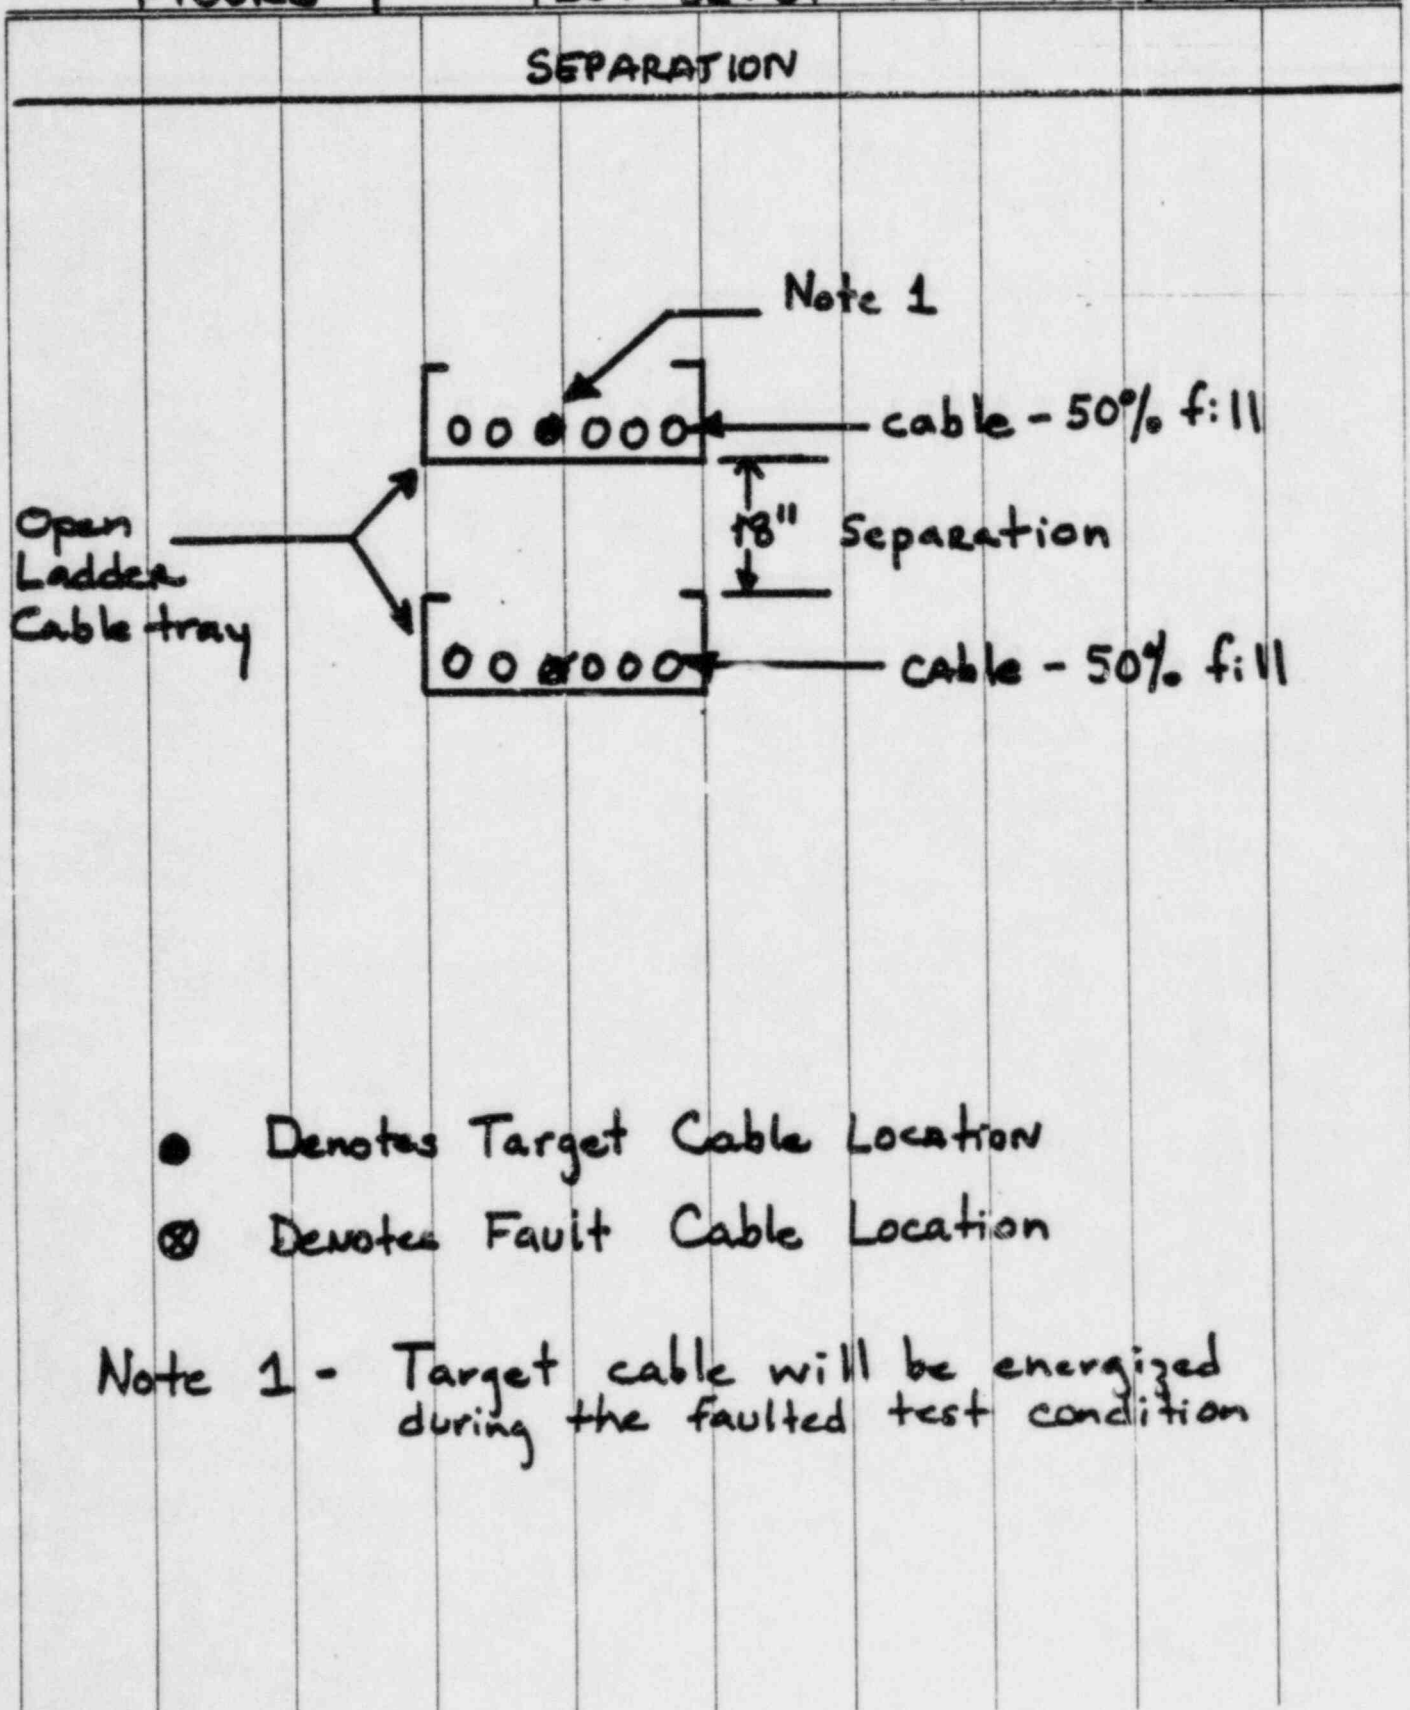 SEPARATION
Note 1
cable - 50% fill
18" Separation
Open
Ladder
Cable tray
cable - 50% fill
Denotes Target Cable Location
Denotes Fault Cable Location
Note 1 - Target cable will be energized
during the faulted test condition